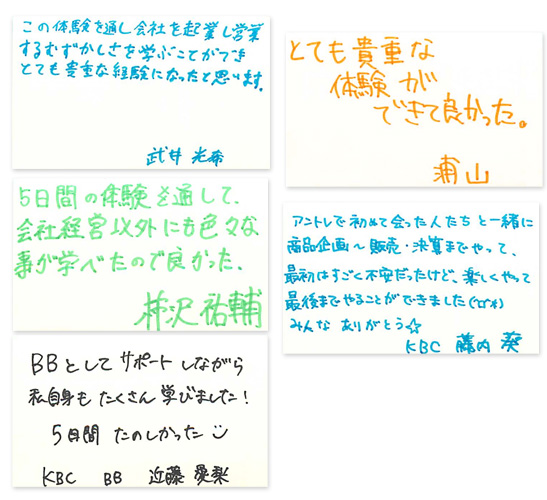 この体験を通し会社を起業し営業
するむずかしさを学ぶことができ
とても貴重な経験になったと思います。
武井 光希
5日間の体験を通して、
会社経営以外にも色々な
事が学べたので良かった。
柿沢 祐輔
BBとして サポートしながら
私自身も たくさん 学びました!
5日間 たのしかった
KBC BB 近藤 愛梨
とても貴重な
体験が
できて良かった。
浦山
アントレで初めて会った人たちと一緒に
商品企画～販売・決算までやって、
最初はすごく不安だったけど、楽しくやって
最後までやることができました
みんな ありがとう☆
KBC 藤内 葵